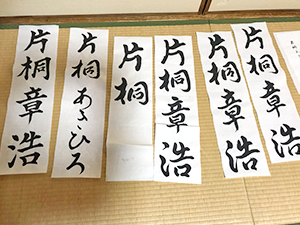 片桐章浩
片桐あきひろ
片桐
片桐章浩
片桐章浩
片桐章浩